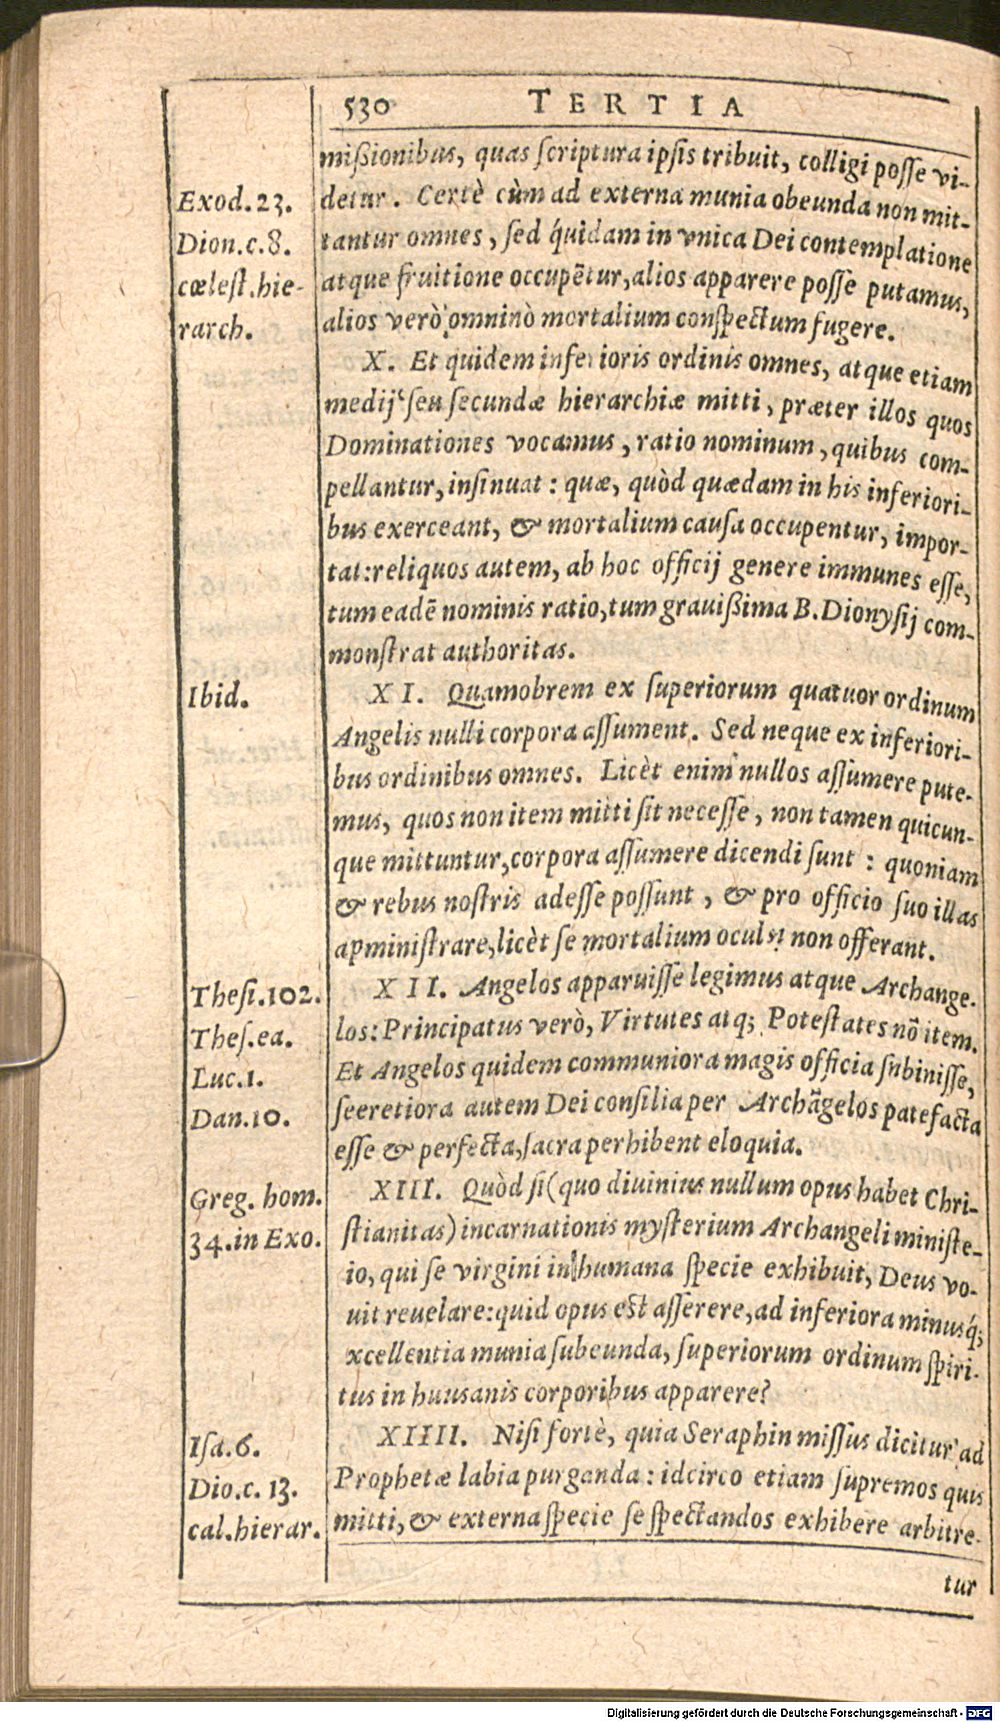 530 TERTIA
mißionibus, quas ſcriptura ipſis tribuit, colligi poſſe vi-
Exod. 23.
detur. Certè cùm ad externa munia obeunda non mit-
Dion. c. 8.
tantur omnes, ſed q́uidam in vnica Dei contemplatione
cœleſt. hie-
atque fruitione occupẽtur, alios apparere poſſe putamus,
rarch.
alios verò omninò mortalium conſpectum fugere.
X. Et quidem inferioris ordinis omnes, atque etiam
medij ſeu ſecundæ hierarchiæ mitti, præter illos quos
Dominationes vocamus, ratio nominum, quibus com-
pellantur, inſinuat: quæ, quòd quædam in his inferiori-
bus exerceant, & mortalium cauſa occupentur, impor-
tat: reliquos autem, ab hoc officij genere immunes eſſe,
tum eadẽ nominis ratio, tum grauißima B. Dionyſij com-
monſtrat authoritas.
Ibid.
XI. Quamobrem ex ſuperiorum quatuor ordinum
Angelis nulli corpora aſſument. Sed neque ex inferiori-
bus ordinibus omnes. Licèt enim nullos aſſumere pute-
mus, quos non item mitti ſit neceſſe, non tamen quicun-
que mittuntur, corpora aſſumere dicendi ſunt: quoniam
& rebus noſtris adeſſe poſſunt, & pro officio ſuo illas
apminiſtrare, licèt ſe mortalium oculis non offerant.
Theſi. 102.
XII. Angelos apparuiſſe legimus atque Archange-
Theſ. ea.
los: Principatus verò, Virtutes atq; Poteſtates nõ item.
Luc. 1.
Et Angelos quidem communiora magis officia ſubiniſſe,
Dan. 10.
ſeeretiora autem Dei conſilia per Archãgelos patefacta
eſſe & perfecta, ſacra perhibent eloquia.
Greg. hom.
XIII. Quòd ſi (quo diuinius nullum opus habet Chri-
34. in Exo.
ſtianitas) incarnationis myſterium Archangeli miniſte-
io, qui ſe virgini in humana ſpecie exhibuit, Deus vo-
uit reuelare: quid opus eſt aſſerere, ad inferiora minusq́;
xcellentia munia ſubeunda, ſuperiorum ordinum ſpiri-
tus in huusanis corporibus apparere?
Iſa. 6.
XIIII. Niſi fortè, quia Seraphin miſſus dicitur ad
Dio. c. 13.
Prophetæ labia purganda: idcirco etiam ſupremos quis
cal. hierar.
mitti, & externa ſpecie ſe ſpectandos exhibere arbitre-
tur
Digitalisierung gefördert durch die Deutsche Forschungsgemeinschaft - DFG